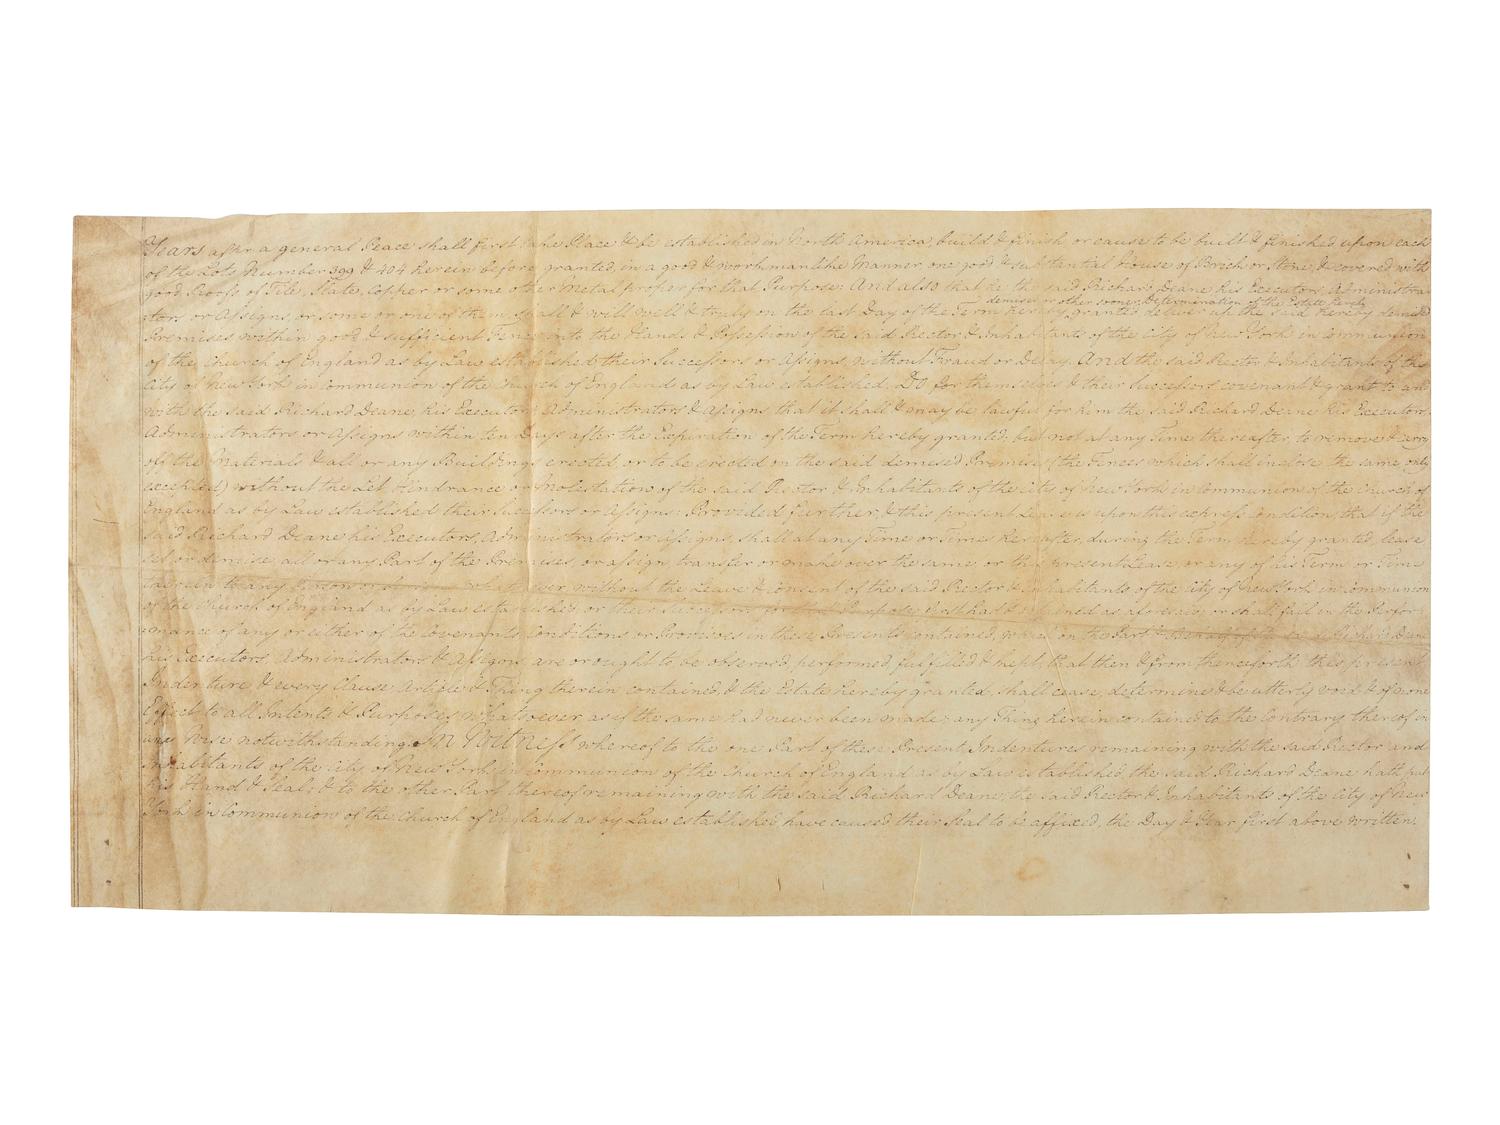 Years after a general Peace shall first take Place & be established in North America, build & finish or cause to be built & finished upon each
of the Lots Number 399 & 404 herein before granted, in a good & workmanlike Manner one good & substantial House of Brick or Stone, & covered with
good Roofs of Tile, Slate, Copper or some other Metal proper for that Purpose: And also that he the said Richard Deane his Executors Administra-
demised or other sooner Determination of the Estate hereby
ators or Assigns, or some or one of them, shall & will well & truly on the last Day of the Term hereby granted deliver up the said hereby demised
Premises within good & sufficient Fence into the Hands & Possession of the said Rector & Inhabitants of the City of New York in communion
of the Church of England as by Law established their Successors or Assigns, without Fraud or Delay. And the said Rector & Inhabitants of the
City of New York in communion of the Church of England as by Law established, Do for themselves & their Successors covenant & grant to and
with the said Richard Deane, his Executors, Administrators & Assigns that it shall & may be lawful for him the said Richard Deane his Executors,
Administrators or Assigns within ten Days after the Expiration of the Term hereby granted, but not at any Time thereafter, to remove & carry
off the Materials & all or any Buildings erected, or to be erected on the said demised Premises (the Fences which shall inclose the same only
excepted) without the Let Hindrance or Molestation of the said Rector & Inhabitants of the City of New York in Communion of the Church of
England as by Law established their Successors or Assigns: Provided further, & this present Lease is upon this express Condition, that if the
said Richard Deane his Executors, Administrators or Assigns, shall at any Time or Times hereafter, during the Term hereby granted, lease
set or demise, all or any Part of the Premises, or assign transfer or make over the same, or this present Lease, or any of his Term or Time
therein to any Person or Persons whatsoever without the Leave & consent of the said Rector & Inhabitants of the City of New York in communion
of the Church of England as by Law established, or their Successors for that Purpose, first had & obtained as aforesaid; or shall fail in the Perfor-
-mance of any or either of the Covenants Conditions or Provisoes in these Presents contained, which on the Part & Behalf of the said Richard Deane
his Executors, Administrators & Assigns, are or ought to be observed, performed, fulfilled & kept, that then & from thenceforth this present
Indenture & every Clause, Article & Thing therein contained, & the Estate hereby granted, shall cease, determine & be utterly void & of none
Effect to all Intents & Purposes whatsoever as if the same had never been made; any Thing herein contained to the Contrary thereof in
Wise notwithstanding. In Witness whereof to the one Part of these Present Indentures remaining with the said Rector and
Inhabitants of the City of New York in communion of the Church of England as by Law established, the said Richard Deane hath put
his Hand & Seal; & to the other Part thereof remaining with the said Richard Deane, the said Rector & Inhabitants of the City of New
York in Communion of the Church of England as by Law established have caused their Seal to be affixed, the Day & Year first above written.